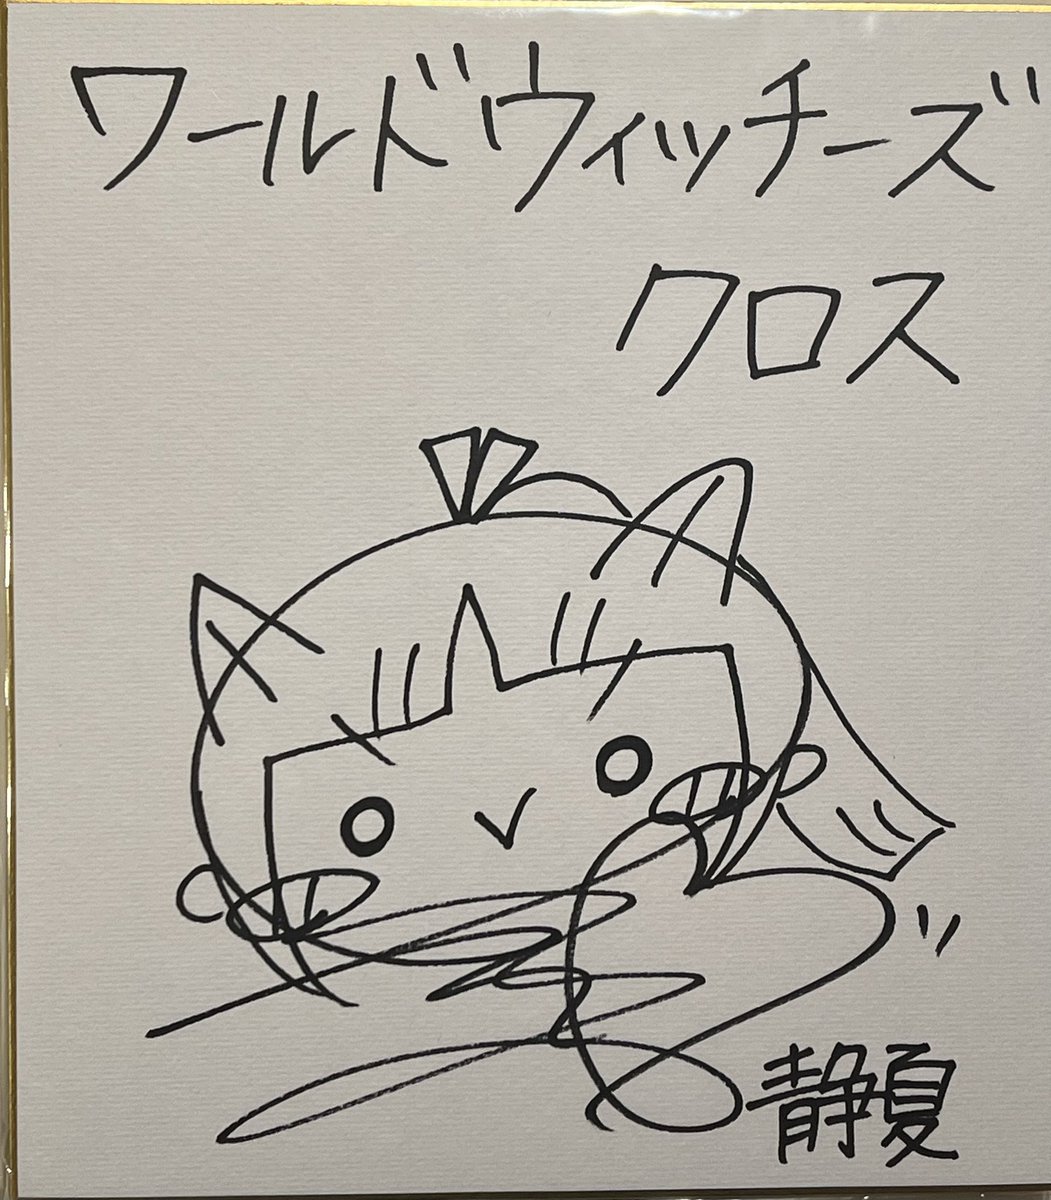 ワールドウィッチーズ
クロス
静夏